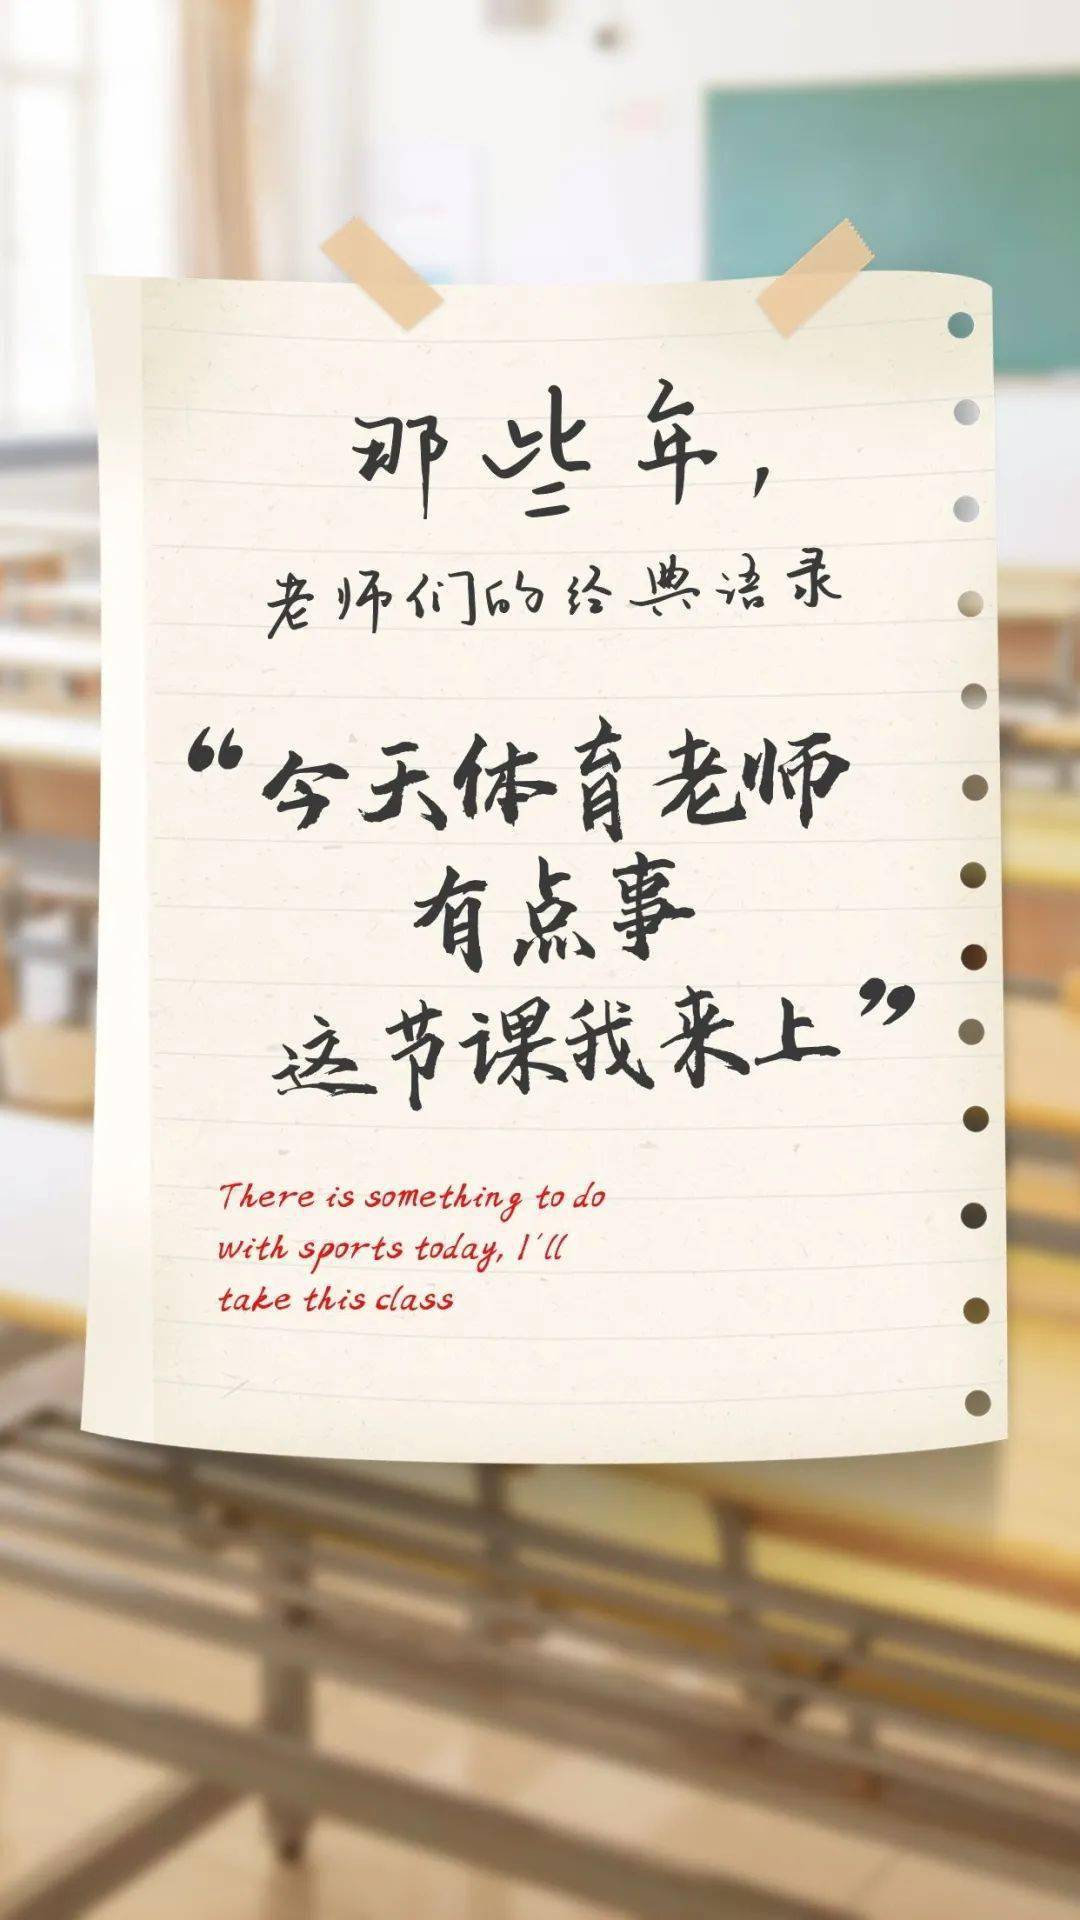 那些年，
老师们的经典语录
“今天体育老师
有点事
这节课我来上”
There is something to do
with sports today, I'll
take this class